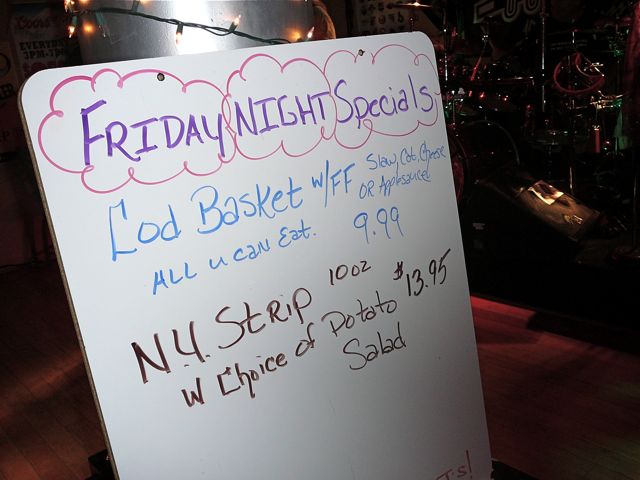 FRIDAY NIGHT Specials
Cod Basket W/FF Slaw, Cot, Cheese
OR Applesauce!
ALL u can Eat. 9.99
N.Y. StRip 10oz $13.95
W Choice of Potato
Salad